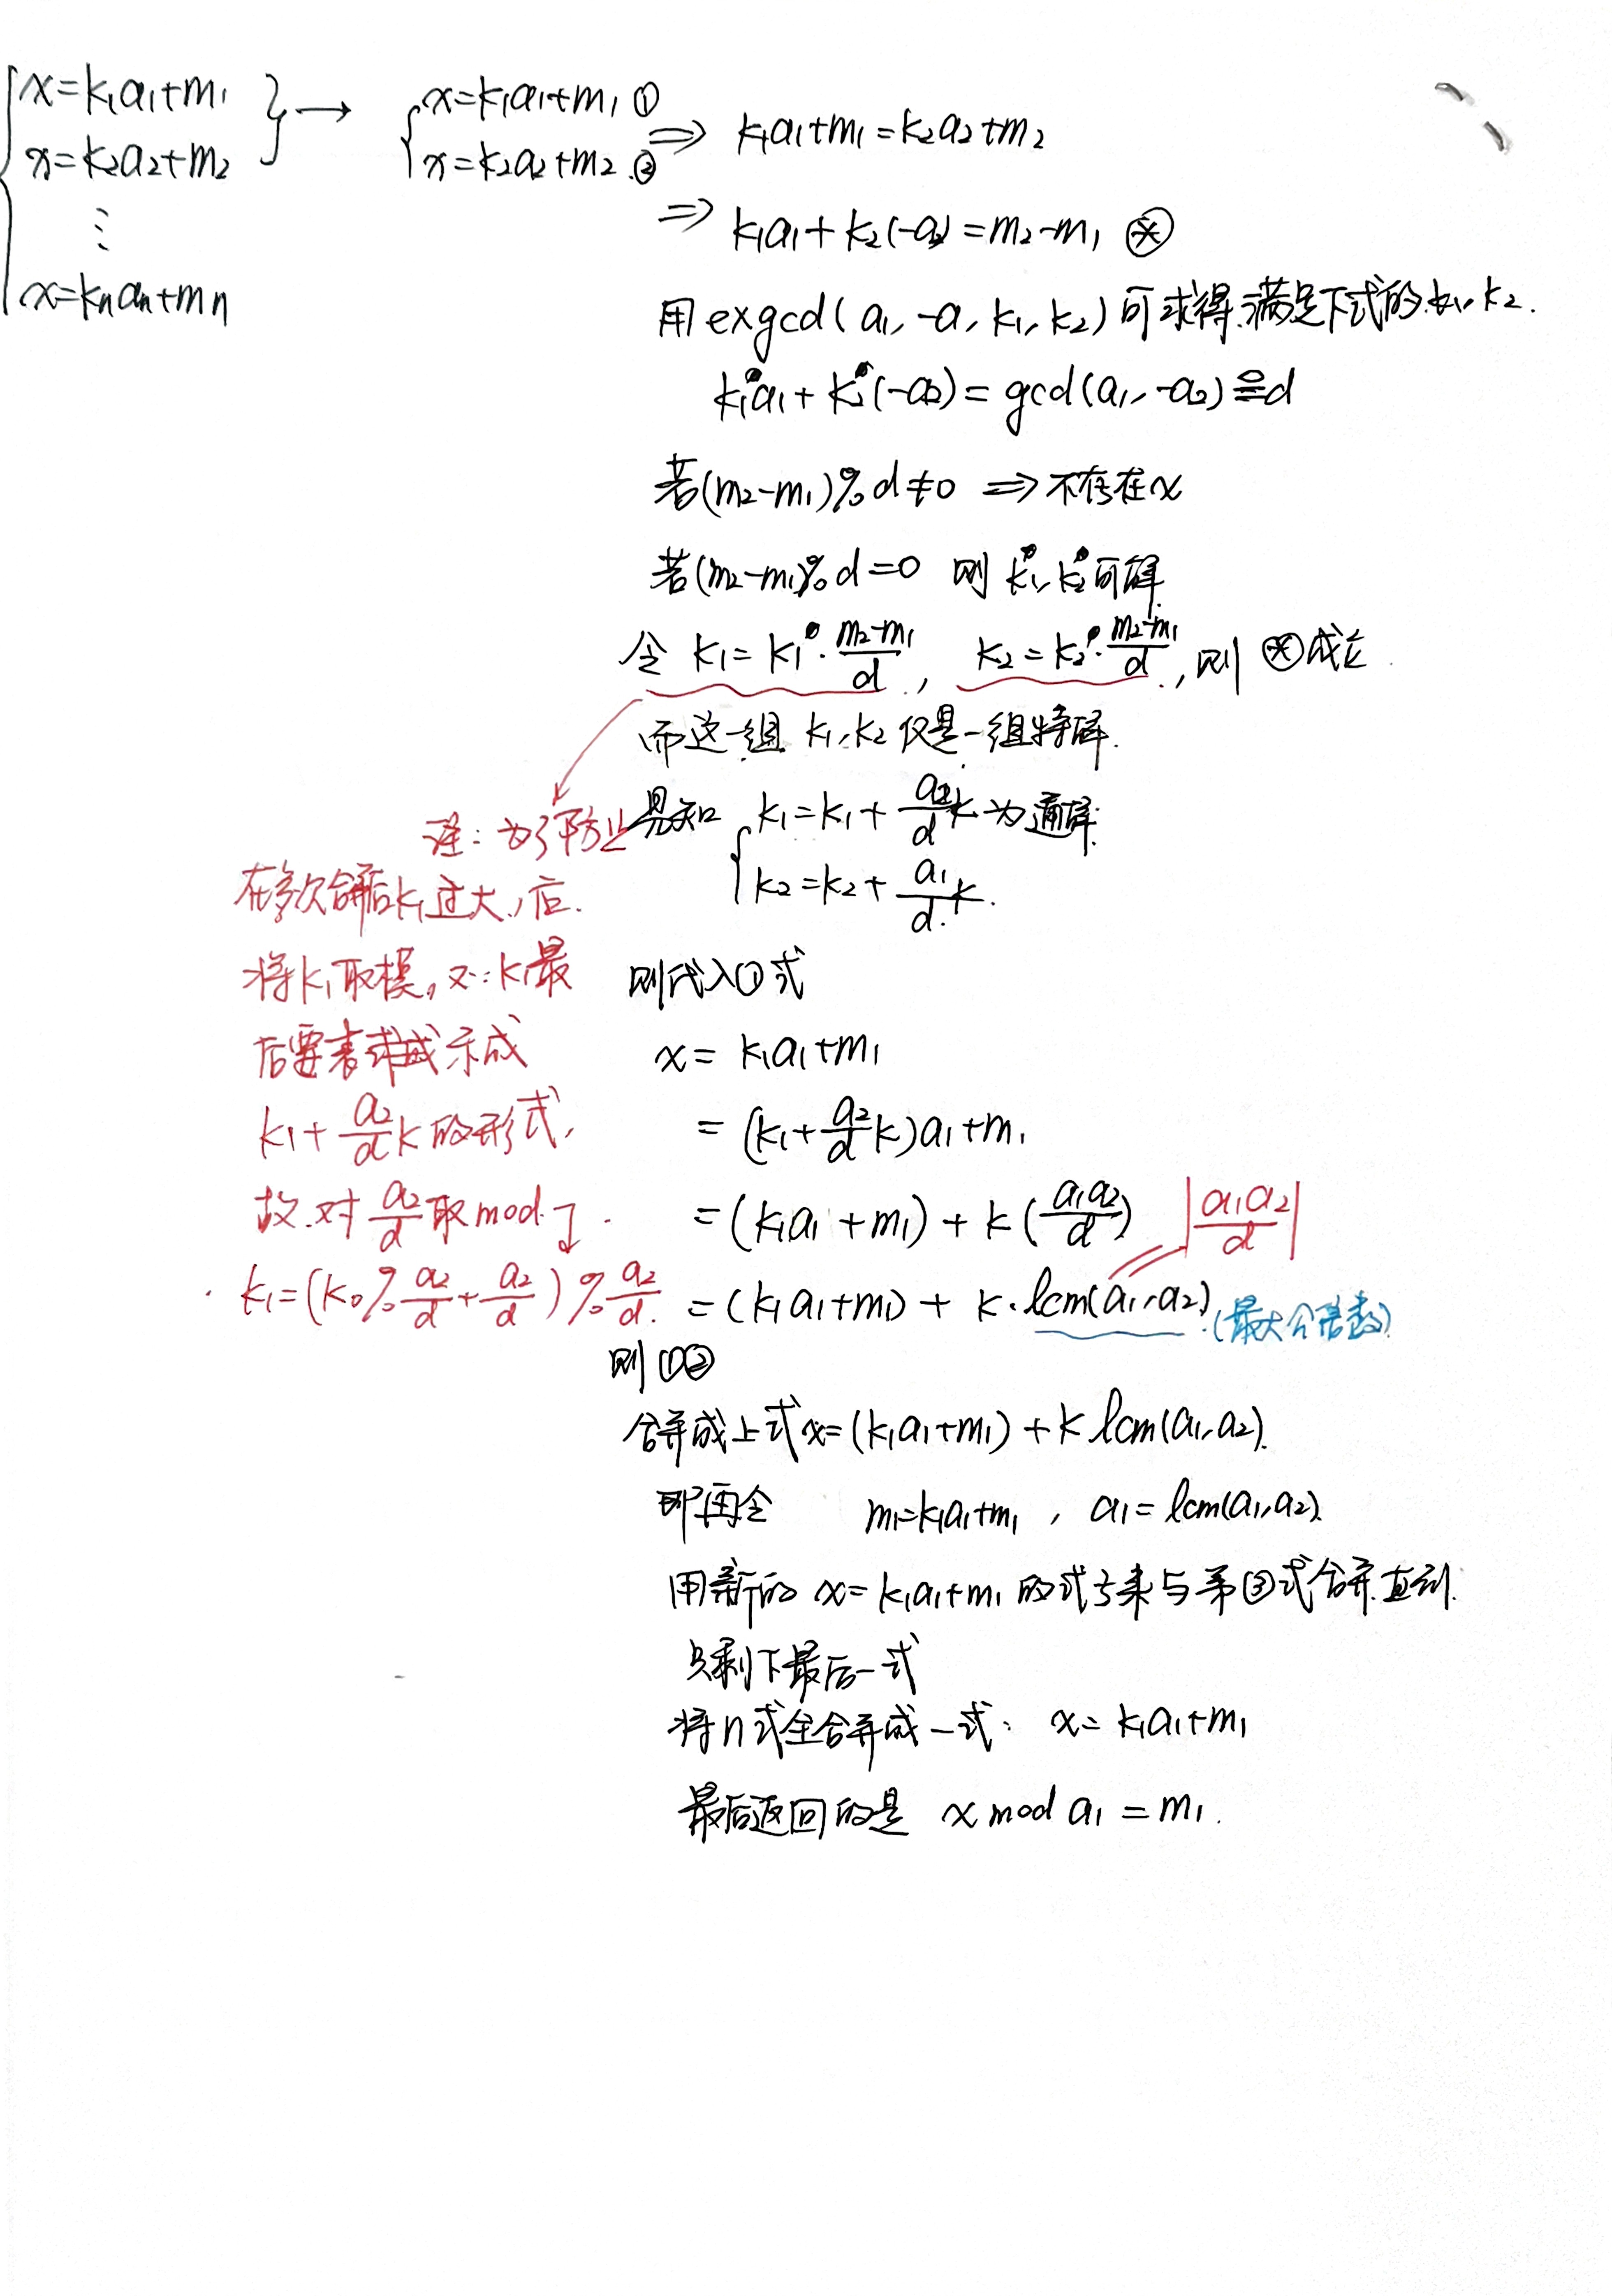 x=k₁a₁+m₁
x=k₂a₂+m₂
⋮
x=kₙaₙ+mₙ
→
x=k₁a₁+m₁ ①
x=k₂a₂+m₂ ②
⇒ k₁a₁+m₁=k₂a₂+m₂
⇒ k₁a₁+k₂(-a₂)=m₂-m₁ ⊛
用exgcd(a₁,-a,k₁,k₂)可求得满足下式的k₁,k₂.
k₁°a₁+k₂°(-a₂)=gcd(a₁,-a₂)≜d
若(m₂-m₁)%d≠0 ⇒不存在x
若(m₂-m₁)%d=0 则 k₁°,k₂°可解
令 k₁=k₁°·(m₂-m₁)/d, k₂=k₂°·(m₂-m₁)/d,则 ⊛成立.
而这一组 k₁,k₂仅是一组特解.
易知 k₁=k₁+(a₂/d)k为通解.
k₂=k₂+(a₁/d)k.
注:为了防止
在多次合并后k₁过大,应.
将k₁取模,又∵k₁最
后要表示成
k₁+(a₂/d)k的形式,
故对 a₂/d 取mod.
k₁=(k₀%a₂/d+a₂/d)%a₂/d.
则代入①式
x=k₁a₁+m₁
=(k₁+(a₂/d)k)a₁+m₁
=(k₁a₁+m₁)+k(a₁a₂/d) |a₁a₂/d|
=(k₁a₁+m₁)+k·lcm(a₁,a₂).(最大公倍数)
则①②
合并成上式x=(k₁a₁+m₁)+k lcm(a₁,a₂).
即再令 m₁=k₁a₁+m₁, a₁=lcm(a₁,a₂).
用新的 x=k₁a₁+m₁ 的式子来与第③式合并.直到.
只剩下最后一式
将n式全合并成一式: x=k₁a₁+m₁
最后返回的是 x mod a₁=m₁.